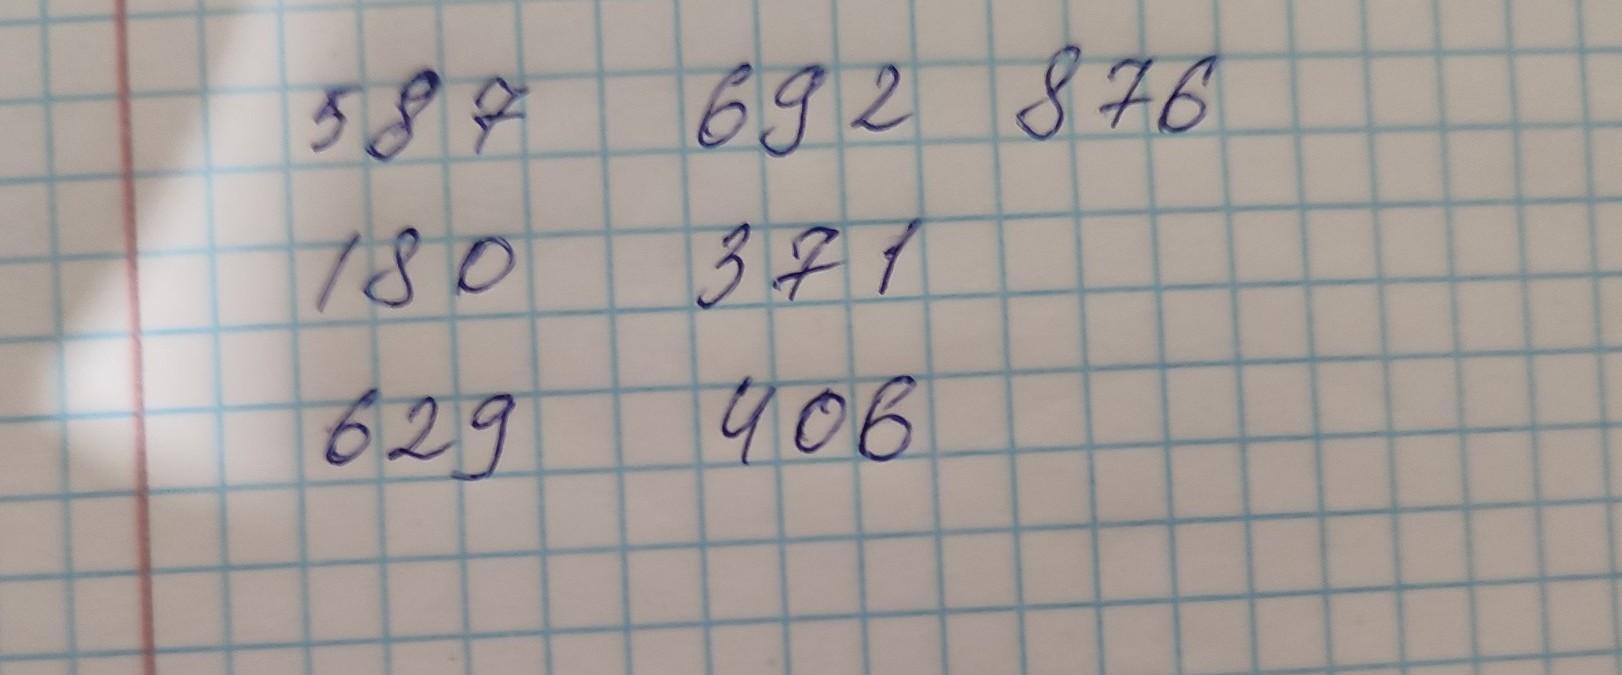 587 692 876
180 371
629 406